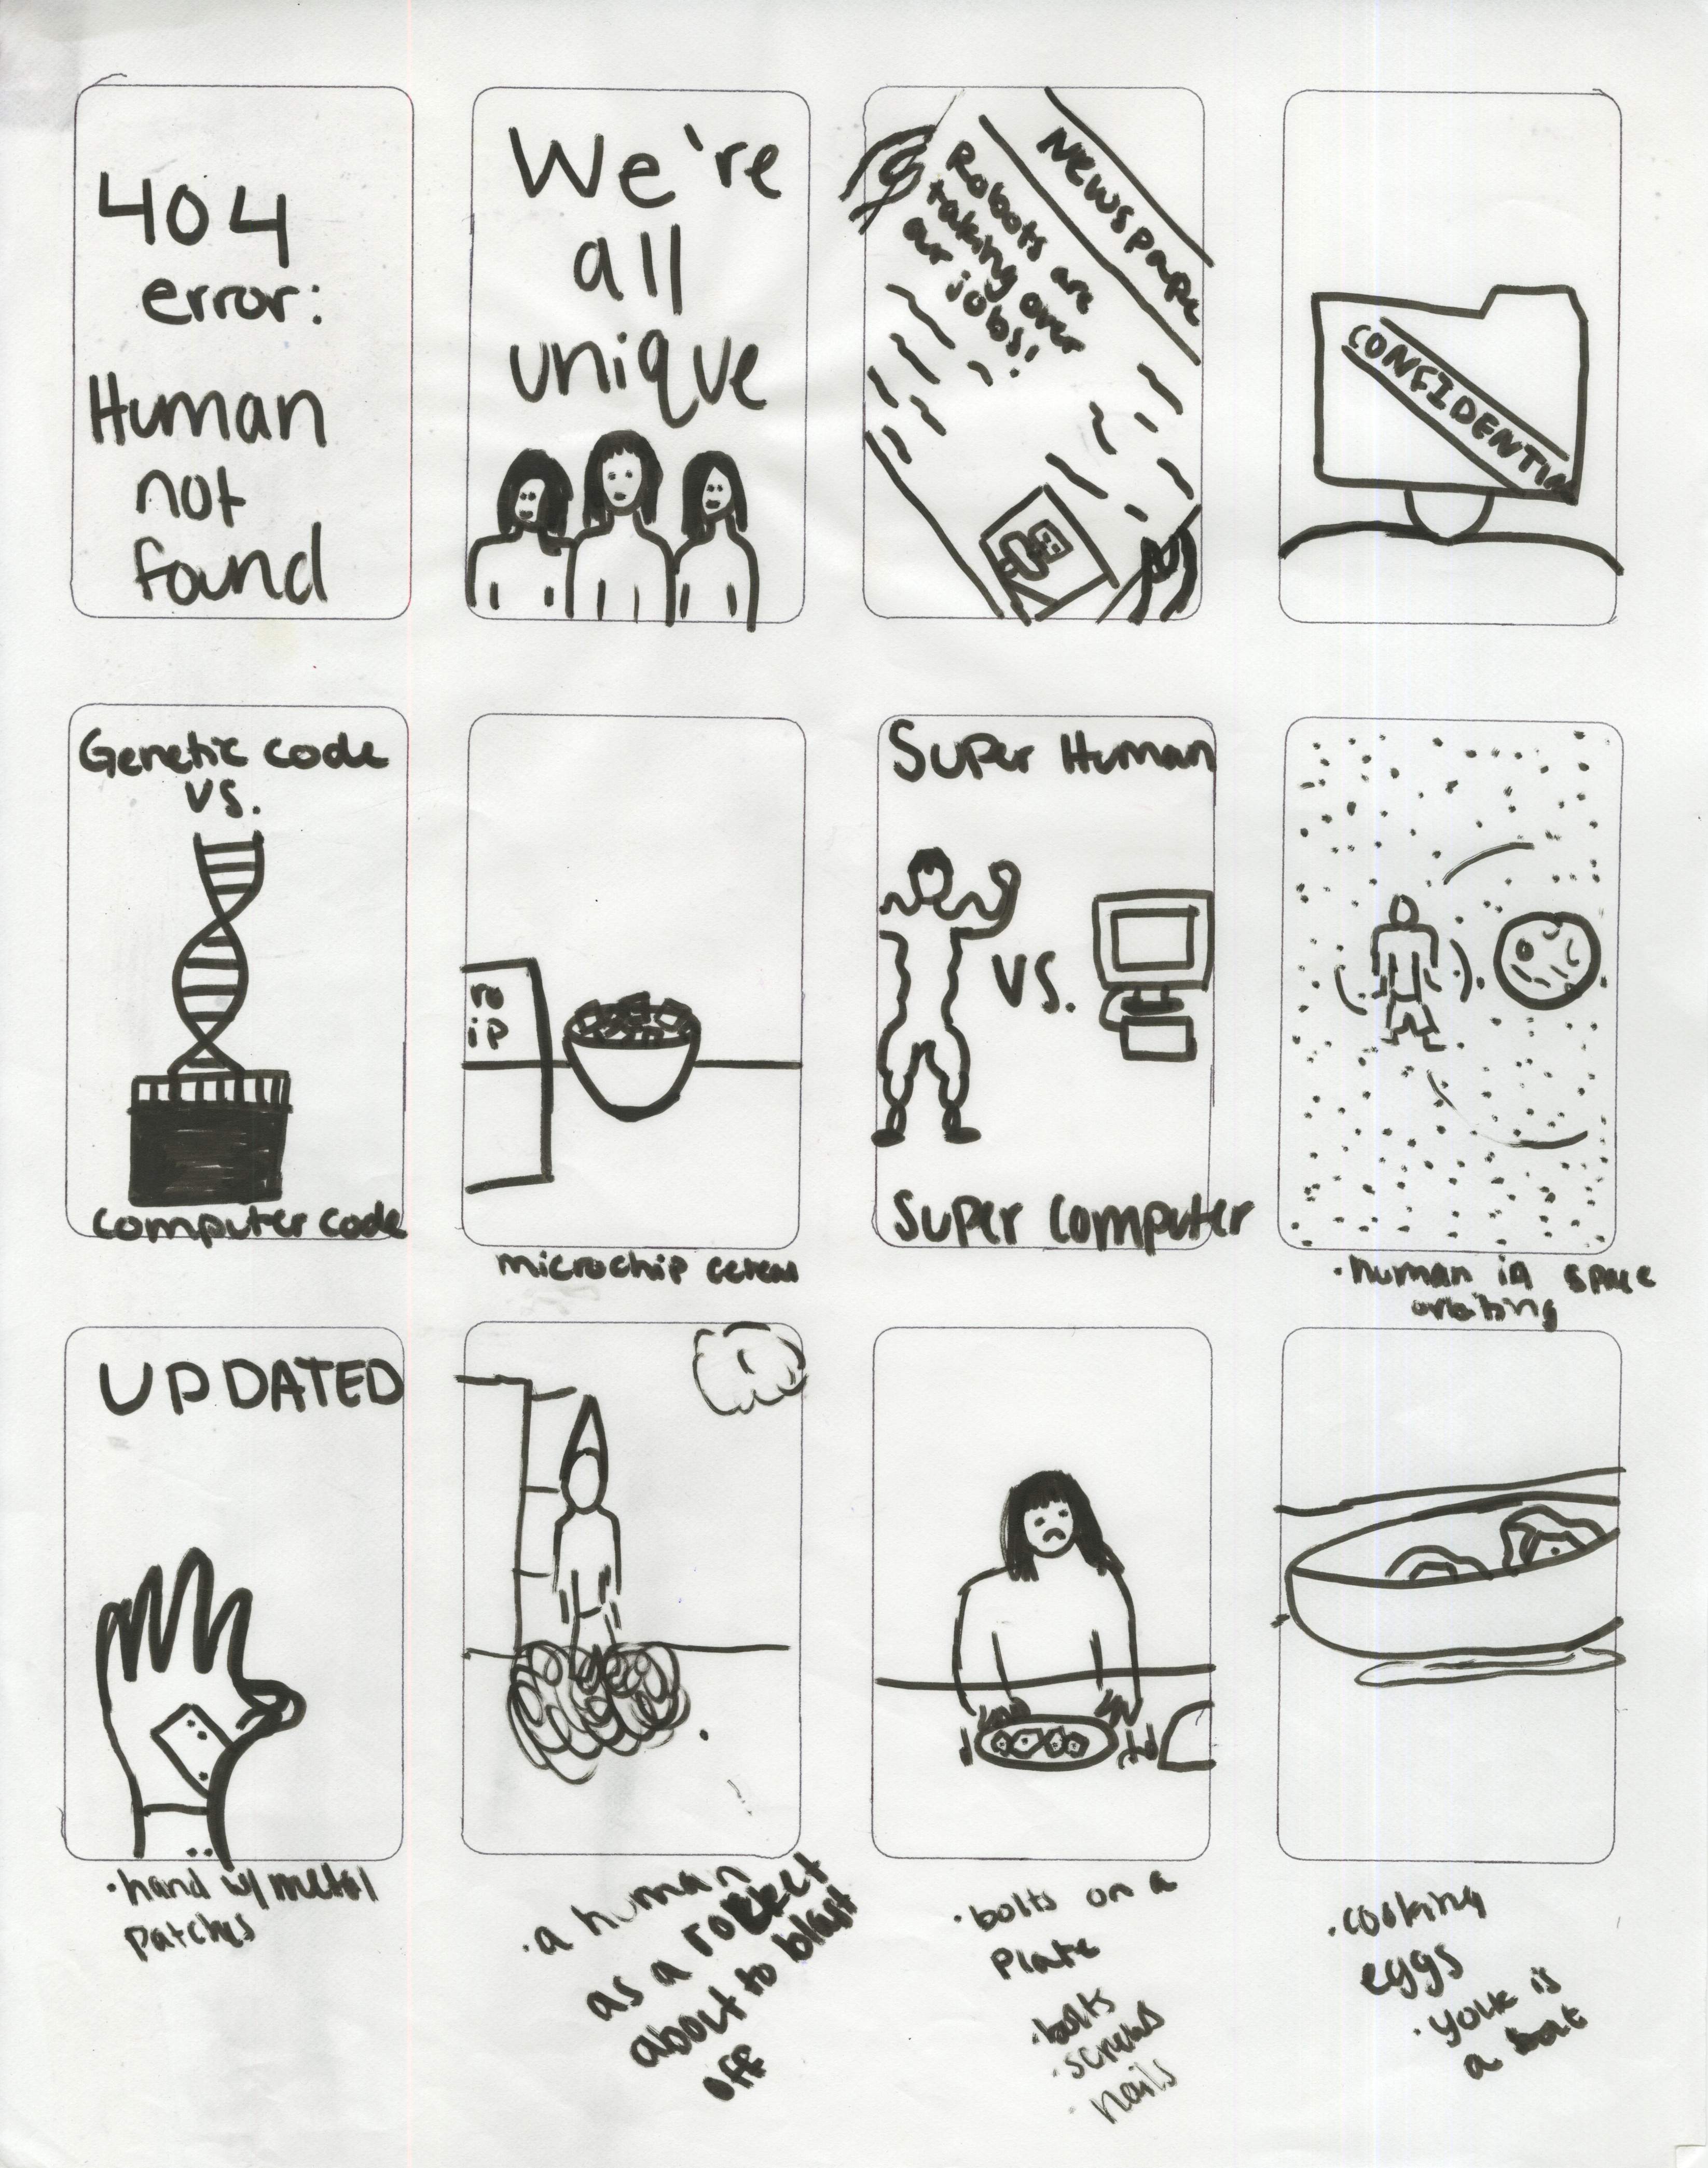 404
error:
Human
not
found
We're
all
unique
Newspape
Robots are
taking over
ar jobs!
CONFIDENTIA
Genetic code
vs.
computer code
ro
ip
microchip cereal
Super Human
vs.
Super computer
• human in space
orbiting
UPDATED
• hand w/ metal
patches
• a human
as a rocket
about to blast
off
• bolts on a
plate
• bolts
• screws
• nails
• cooking
eggs
• yolk is
a